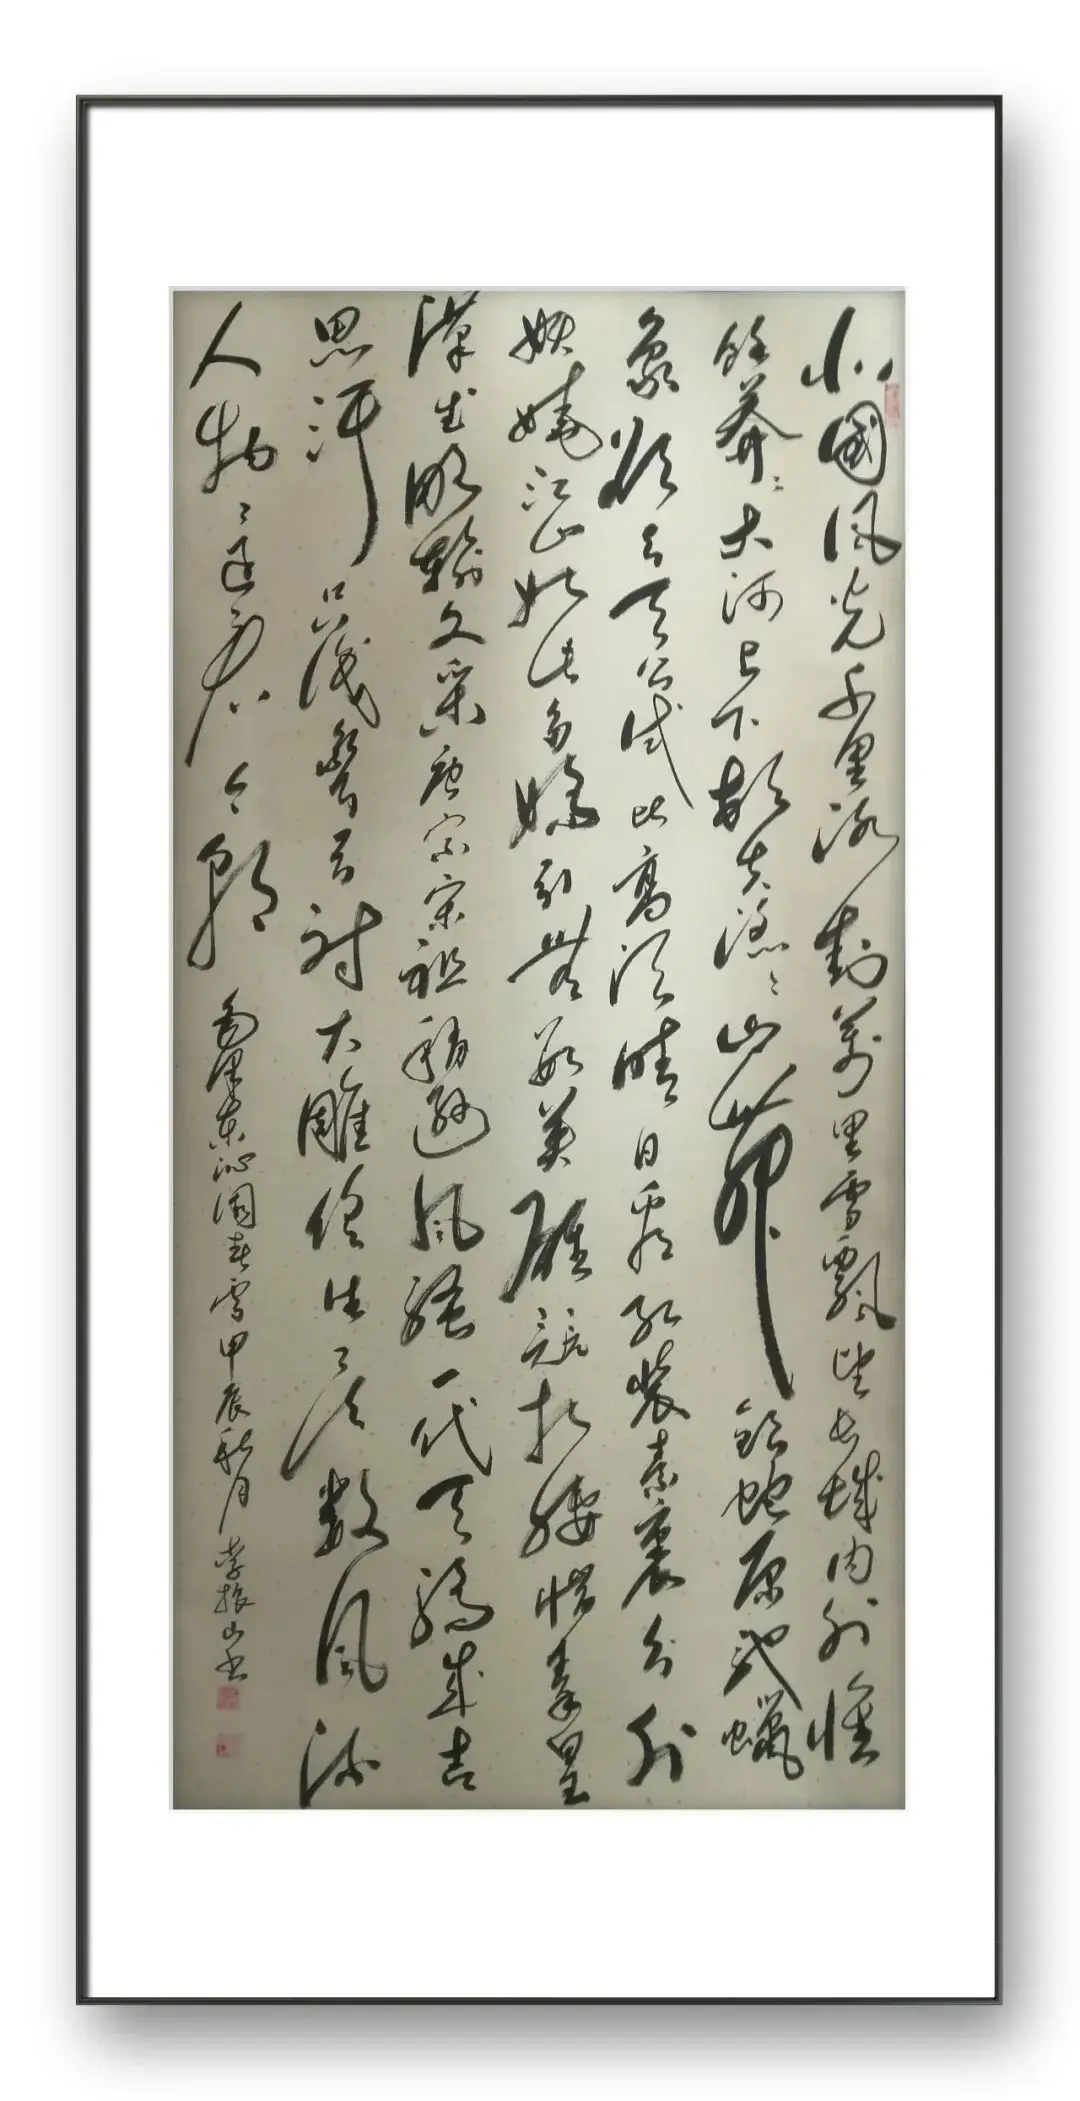 北國风光千里冰封萬里雪飄望长城内外惟
餘莽々大河上下顿失滔々山舞銀蛇原驰蠟
象欲与天公试比高须晴日看红装素裹分外
妖嬈江山如此多嬌引無数英雄競折腰惜秦皇
漢武略输文采唐宗宋祖稍逊风骚一代天骄成吉
思汗只识弯弓射大雕俱往矣数风流
人物还看今朝 毛泽东沁园春雪甲辰秋月李振山书